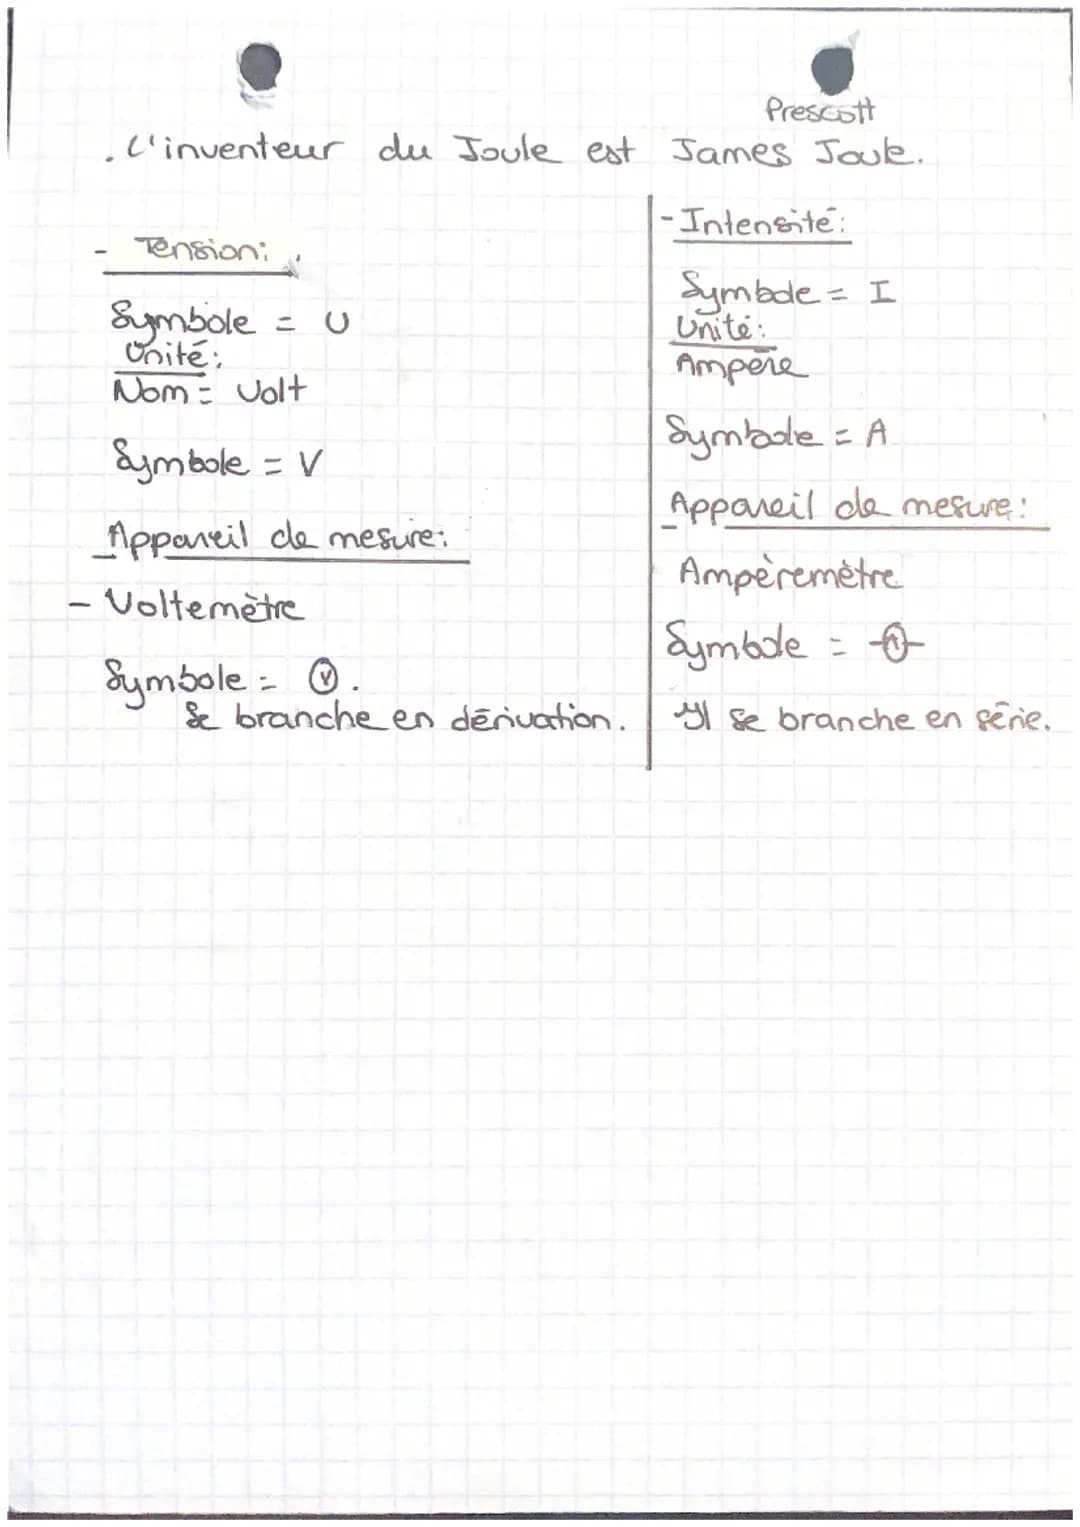 Prescott
. L'inventeur du Joule est James Joule.
- Tension:
Symbole = U
Unité:
Nom = Volt
Symbole = V
Appareil de mesure:
- Voltemètre
Symbole = Ⓥ.
Se branche en dérivation.
- Intensité:
Symbole = I
Unité:
Ampère
Symbole = A
Appareil de mesure:
Ampèremètre
Symbole = -Ⓐ-
Il se branche en série.